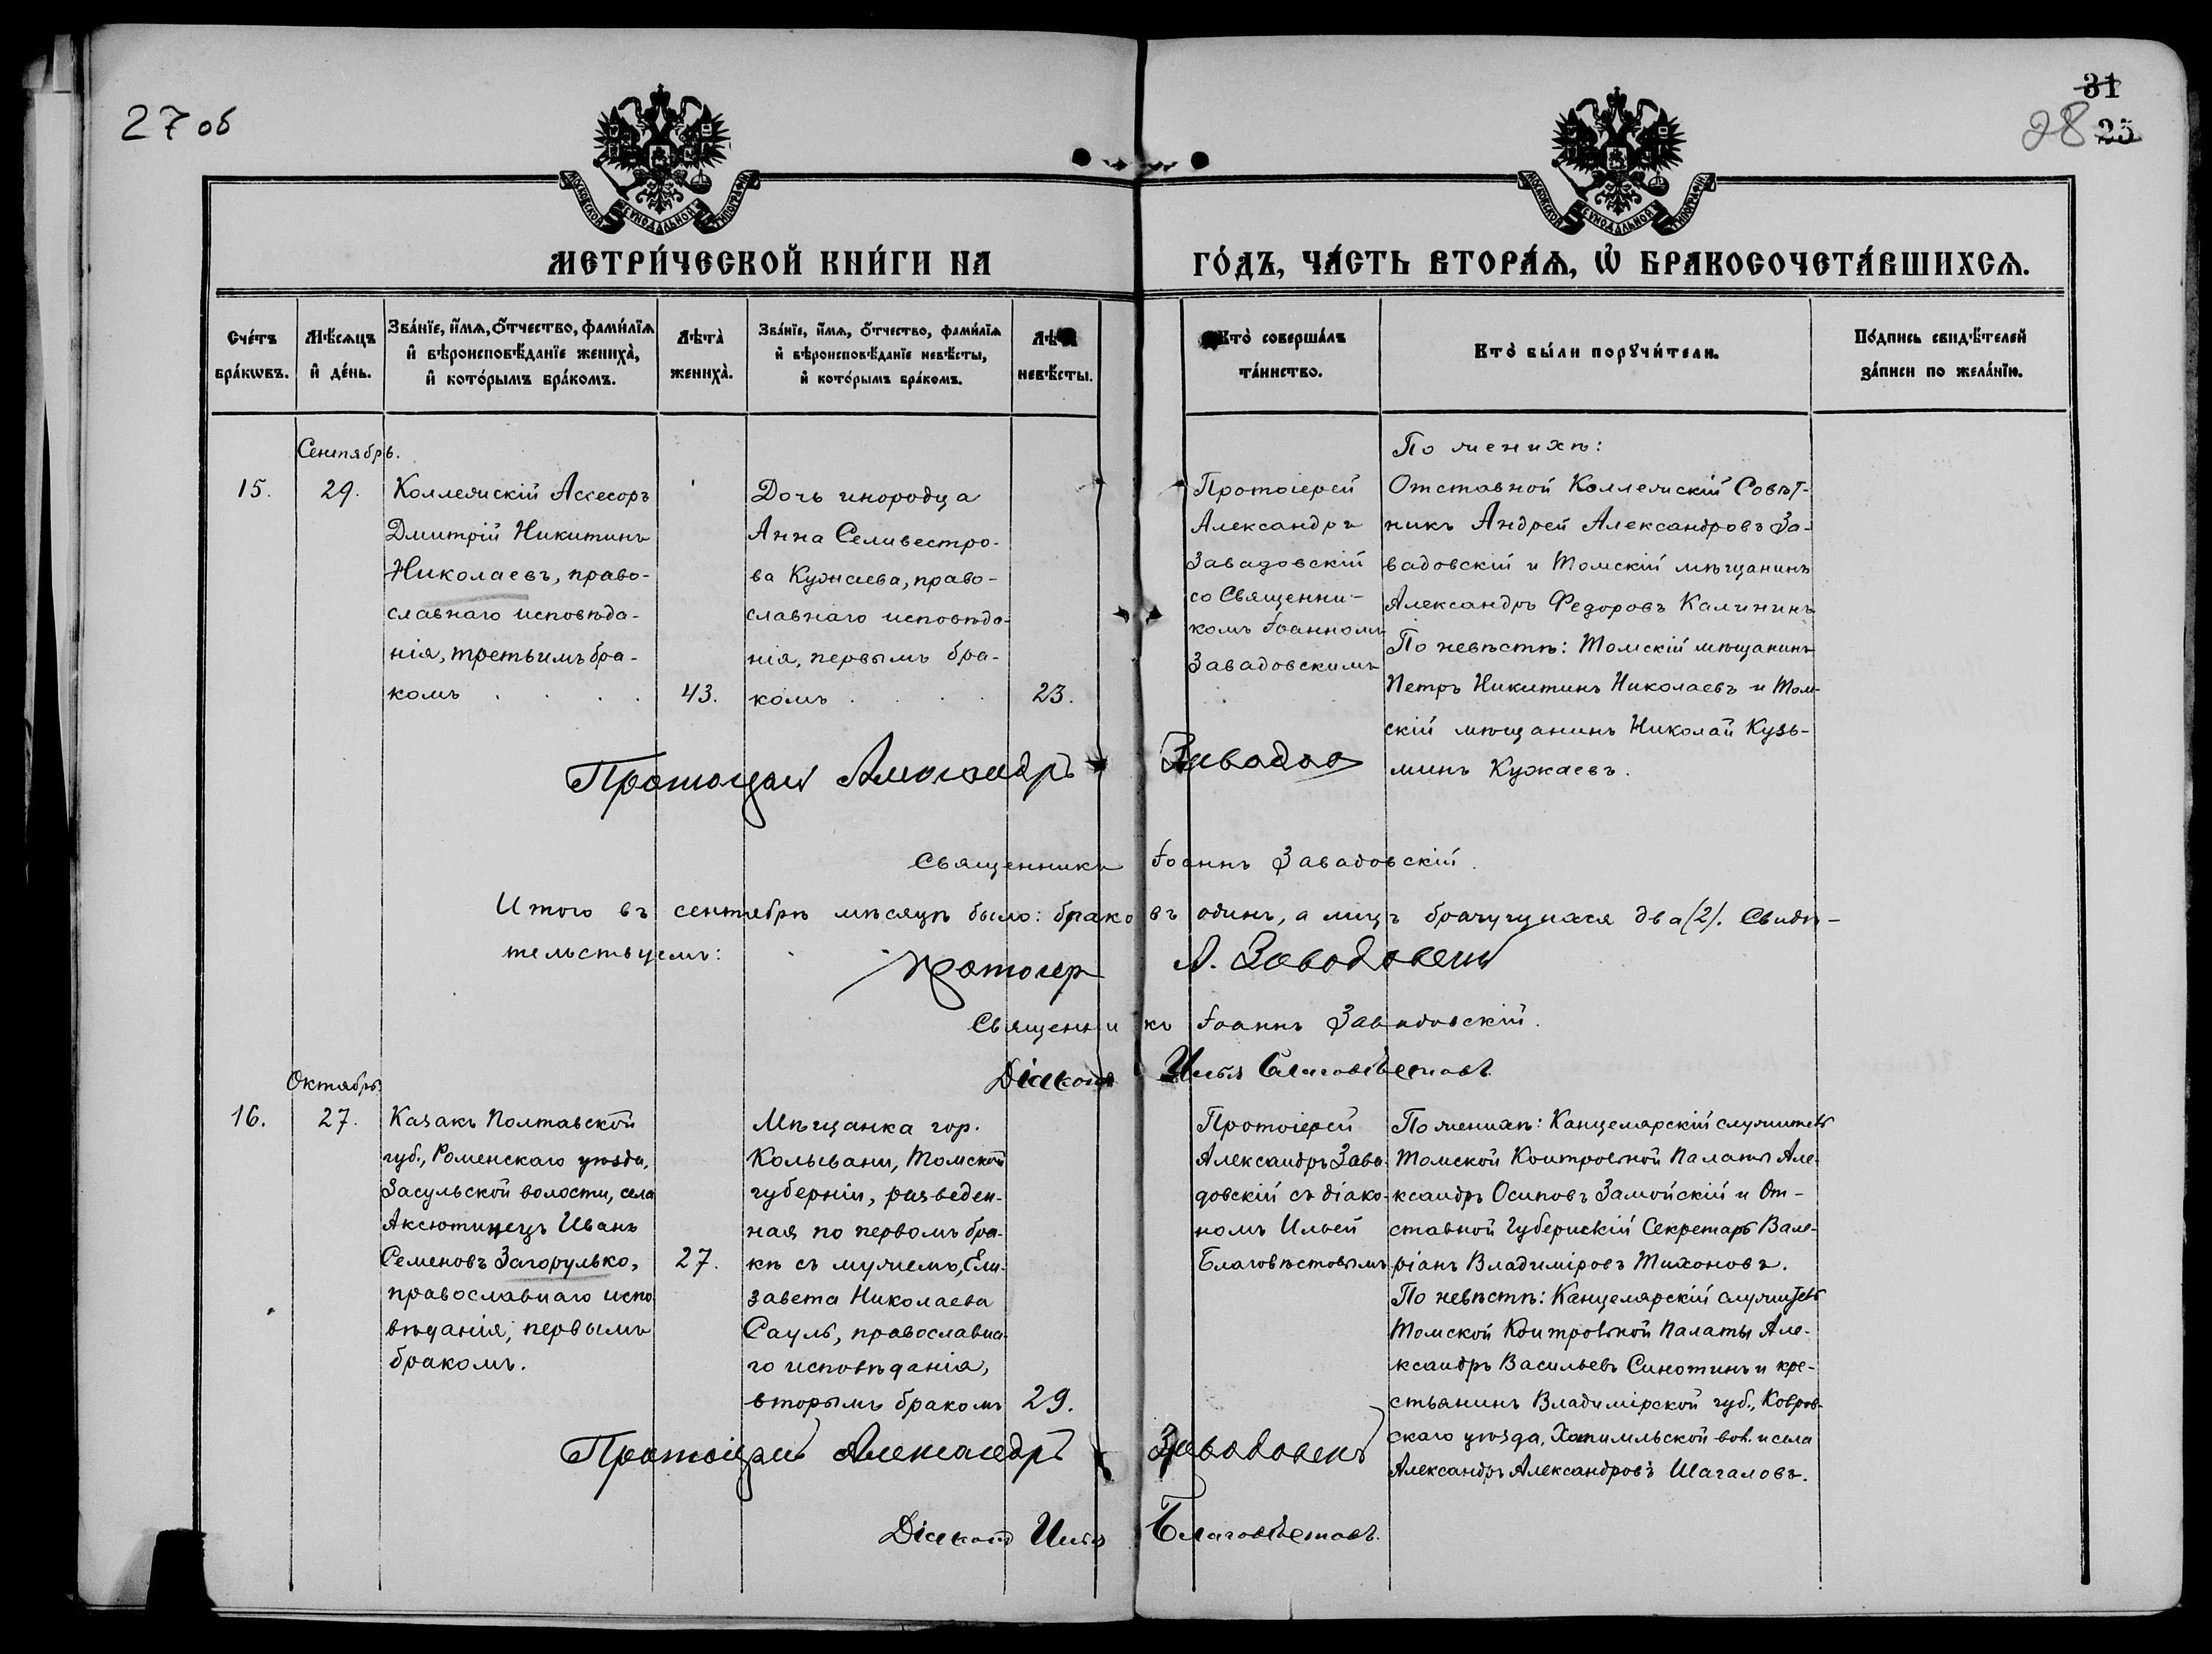 27 об
31
28 25
МОСКОВСКОЙ СѴНОДАЛЬНОЙ ТИПОГРАФІИ
МОСКОВСКОЙ СѴНОДАЛЬНОЙ ТИПОГРАФІИ
МЕТРИ́ЧЕСКОЙ КНИ́ГИ НА
ГО́ДЪ, ЧА́СТЬ ВТОРА́Ѧ, Ѡ҆ БРАКОСОЧЕТА́ВШИХСѦ.
Сче́тъ
бра́кѡвъ.
Мѣ́сѧцъ
и҆ де́нь.
Зва́нїе, и҆́мѧ, ѻ҆́тчество, фами́лїѧ
и҆ вѣроисповѣ́данїе женихà,
и҆ кото́рымъ бра́комъ.
Лѣтà
женихà.
Зва́нїе, и҆́мѧ, ѻ҆́тчество, фами́лїѧ
и҆ вѣроисповѣ́данїе невѣ́сты,
и҆ кото́рымъ бра́комъ.
невѣ́сты.
Ктò соверша́лъ
та́инство.
Ктò бы́ли порꙋчи́тели.
По́дпись свидѣ́телей
за́писи по жела́нїю.
Сентябрь.
15.
29.
Коллежскій Ассесоръ
Дмитрій Никитинъ
Николаевъ, право-
славнаго исповѣда-
нія, третьимъ бра-
комъ . . . .
43.
Дочь инородца
Анна Селивестро-
ва Кужаева, право-
славнаго исповѣда-
нія, первымъ бра-
комъ . . .
23.
Протоіерей
Александръ
Завадовскій
со Священни-
комъ Іоанномъ
Завадовскимъ
По женихѣ:
Отставной Коллежскій Совѣт-
никъ Андрей Александровъ За-
вадовскій и Томскій мѣщанинъ
Александръ Федоровъ Калининъ
По невѣстѣ: Томскій мѣщанинъ
Петръ Никитинъ Николаевъ и Том-
скій мѣщанинъ Николай Кузь-
минъ Кужаевъ.
Протоіерей Александръ Завадов
Священникъ Іоаннъ Завадовскій.
Итого въ сентябрѣ мѣсяцѣ было: браковъ одинъ, а лицъ брачущихся два (2). Свидѣ-
тельствуемъ:
Протоіер А. Завадовскій
Священникъ Іоаннъ Завадовскій.
Діаконъ Илья Благовѣстовъ.
Октябрь
16.
27.
Казакъ Полтавской
губ., Роменскаго уѣзда,
Засульской волости, села
Аксютинецъ Иванъ
Семеновъ Загорулько,
православнаго испо-
вѣданія, первымъ
бракомъ.
27.
Мѣщанка гор.
Колывани, Томской
губерніи, разведен-
ная по первомъ бра-
кѣ съ мужемъ, Ели-
завета Николаева
Сауль, православна-
го исповѣданія,
вторымъ бракомъ
29.
Протоіерей
Александръ Зава-
довскій съ діако-
номъ Ильей
Благовѣстовымъ
По женихѣ: Канцелярскій служитель
Томской Контрольной Палаты Але-
ксандръ Осиповъ Замойскій и От-
ставной Губернскій Секретарь Вале-
ріанъ Владиміровъ Тихоновъ.
По невѣстѣ: Канцелярскій служитель
Томской Контрольной Палаты Але-
ксандръ Васильевъ Синотинъ и кре-
стьянинъ Владимірской губ., Ковров-
скаго уѣзда, Хотимльской вол. и села
Александръ Александровъ Шагаловъ.
Протоіерей Александръ Завадовскій
Діаконъ Илья Благовѣстовъ.